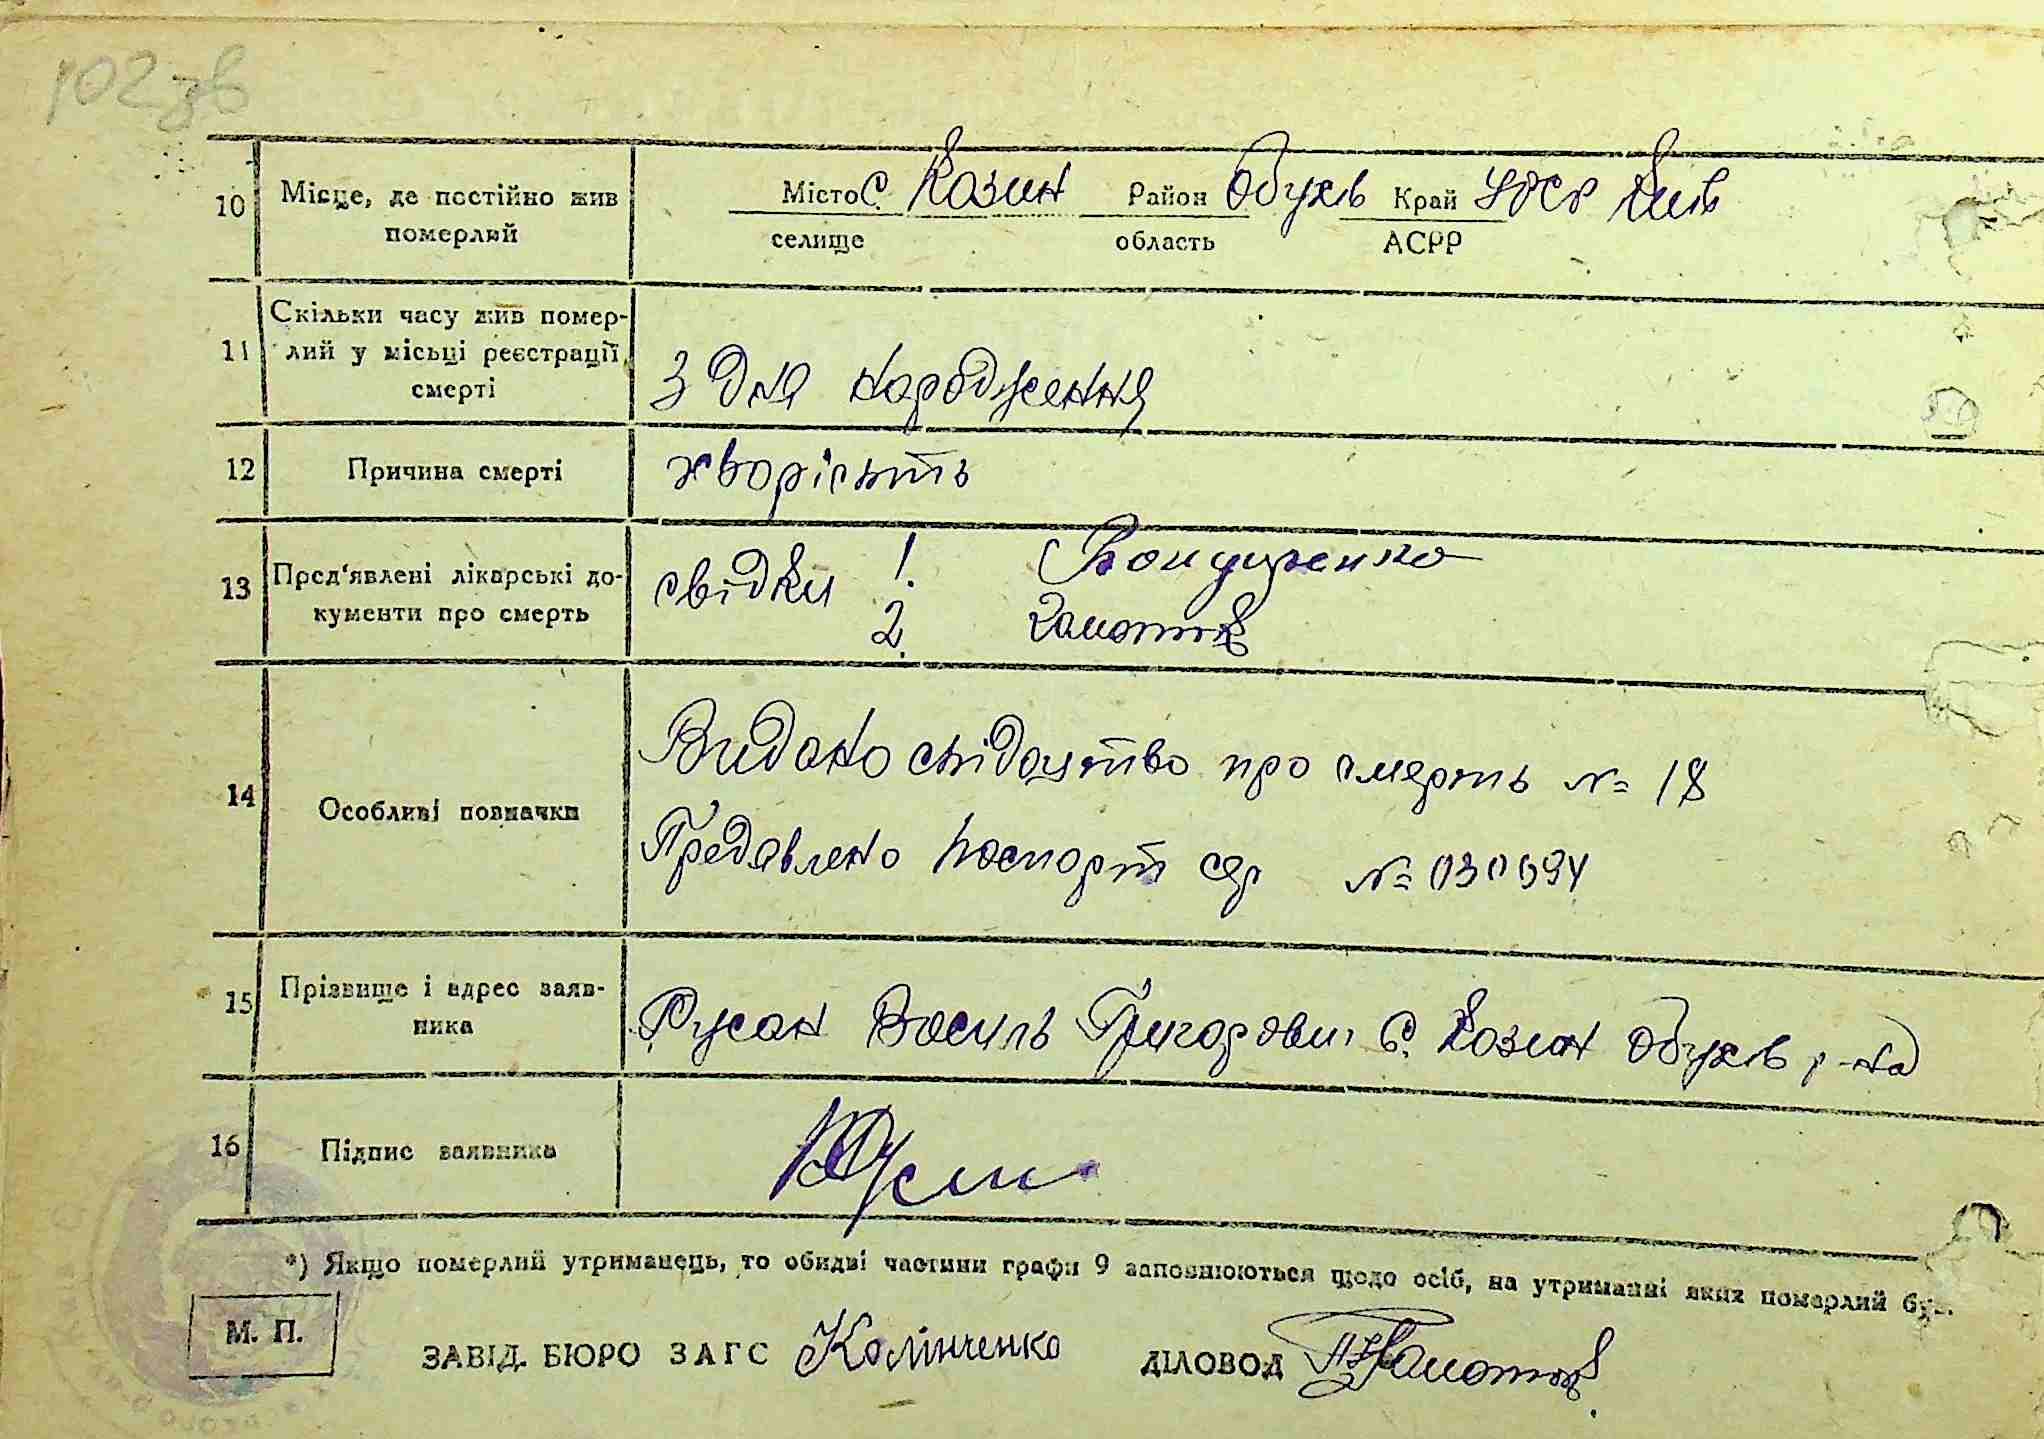 102 зв
10 Місце, де постійно жив Місто с Козин Район Обухів Край УРСР Київ
померлий селище область АСРР
Скільки часу жив помер-
11 лий у місьці реєстрації З дня народження
смерті
12 Причина смерті хворість
13 Пред'явлені лікарські до- свідки 1. Бондаренко
кументи про смерть 2.
Видано свідоцтво про смерть № 18
14 Особливі позначки
Предявлено паспорт сер №
15 Прізвище і адрес заяв- Русан Василь Григорович с. Козин Обухів р-на
ника
16 Підпис заявника
*) Якщо померлий утриманець, то обидві частини графи 9 заповнюються щодо осіб, на утриманні яких померлий був.
М. П.
ЗАВІД. БЮРО ЗАГС Калінченко ДІЛОВОД